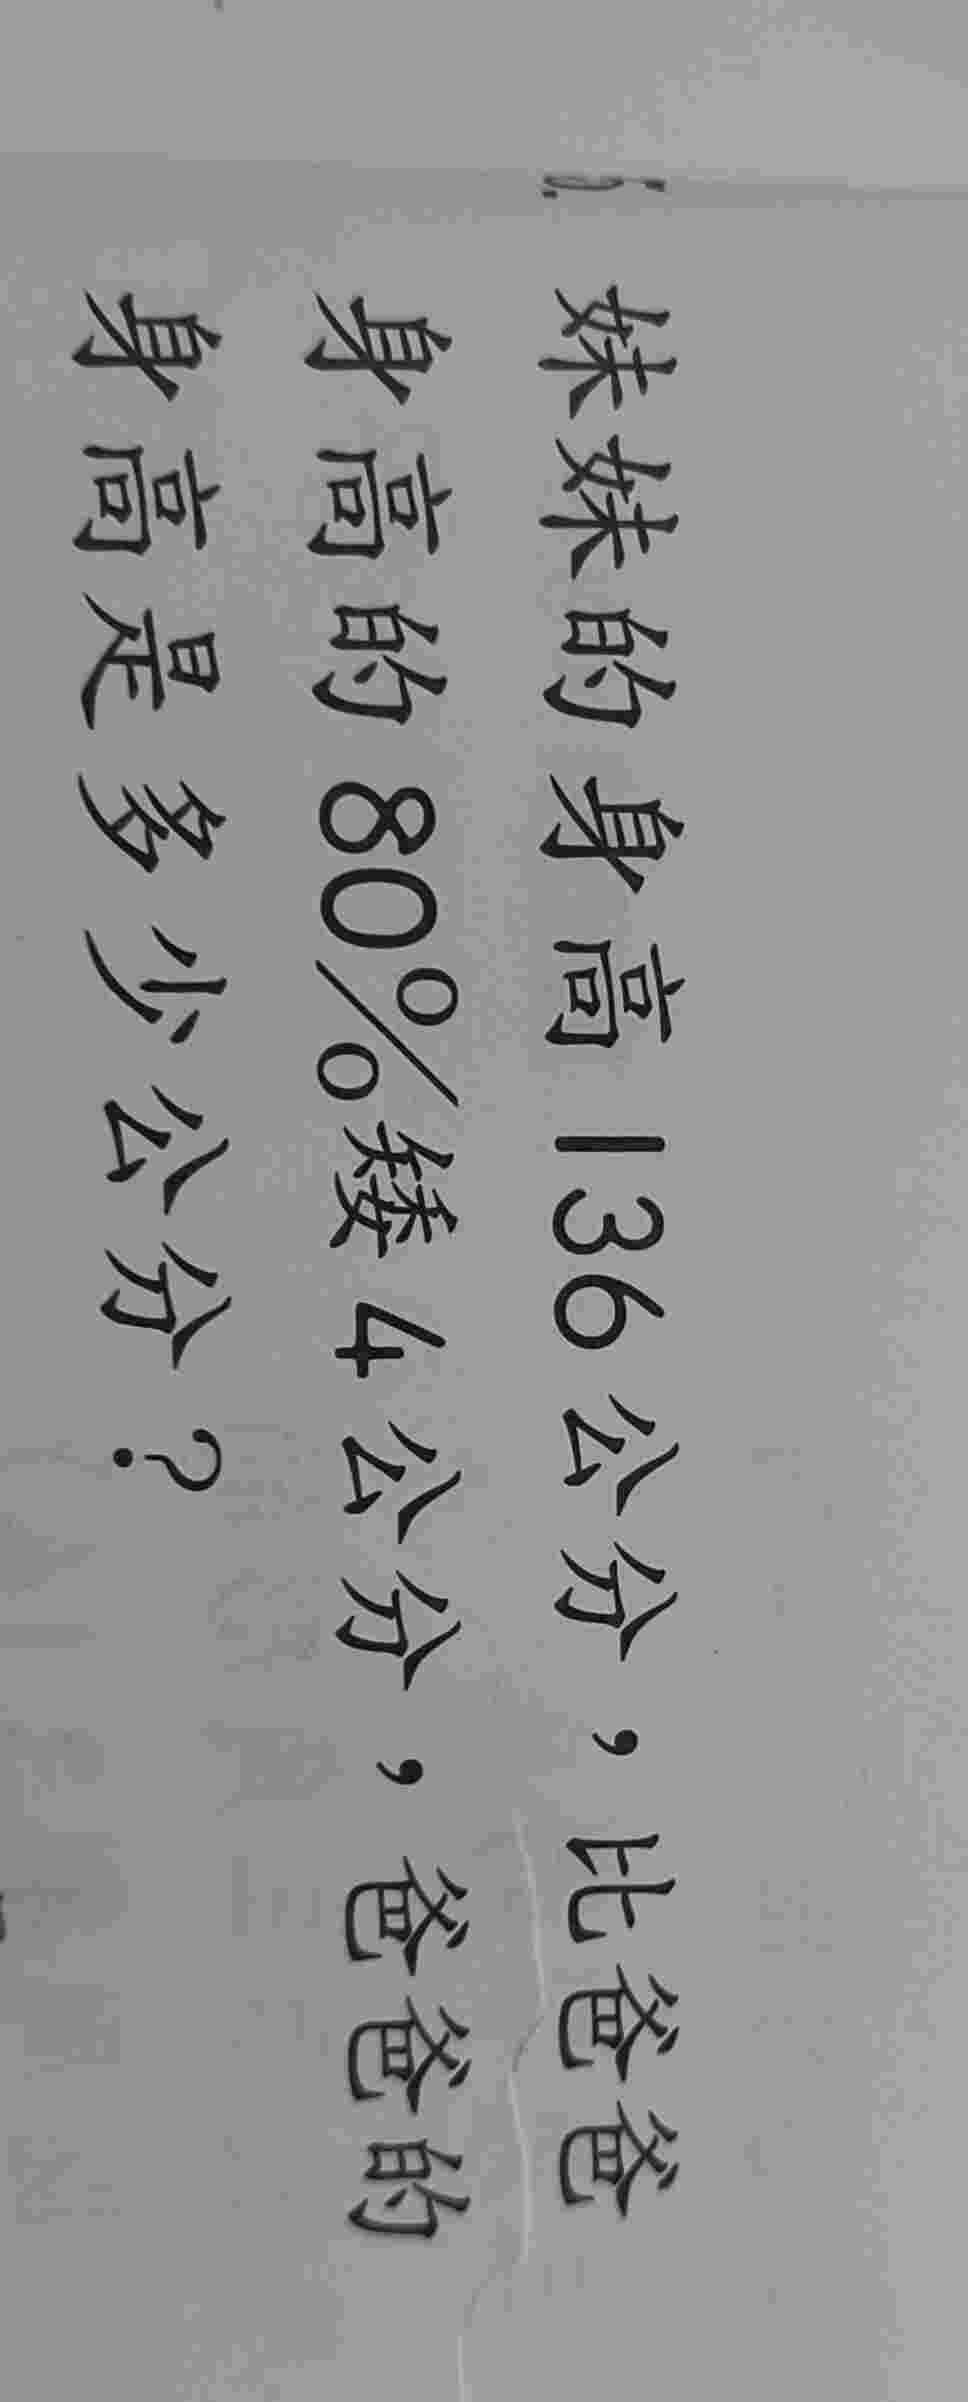 妹妹的身高136公分，比爸爸
身高的80%矮4公分，爸爸的
身高是多少公分？